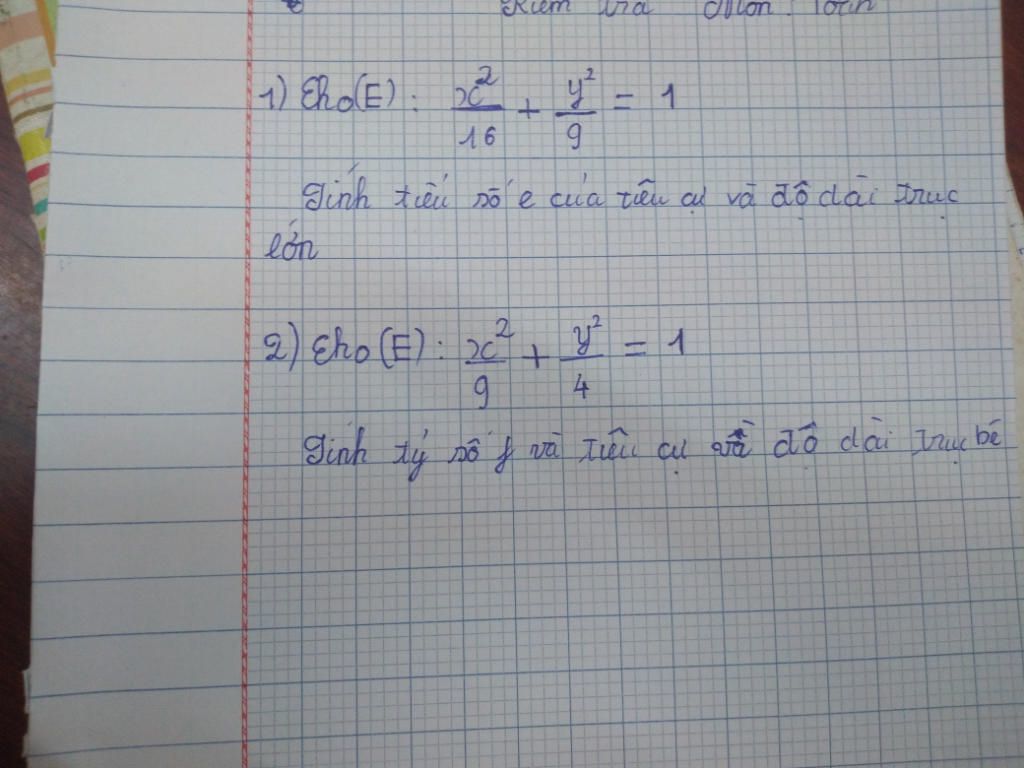 Kiểm tra Môn: Toán
1) Cho (E): x²/16 + y²/9 = 1
Tính tiếu số e của tiêu cự và độ dài trục
lớn
2) Cho (E): x²/9 + y²/4 = 1
Tính tỷ số f và tiêu cự và độ dài trục bé